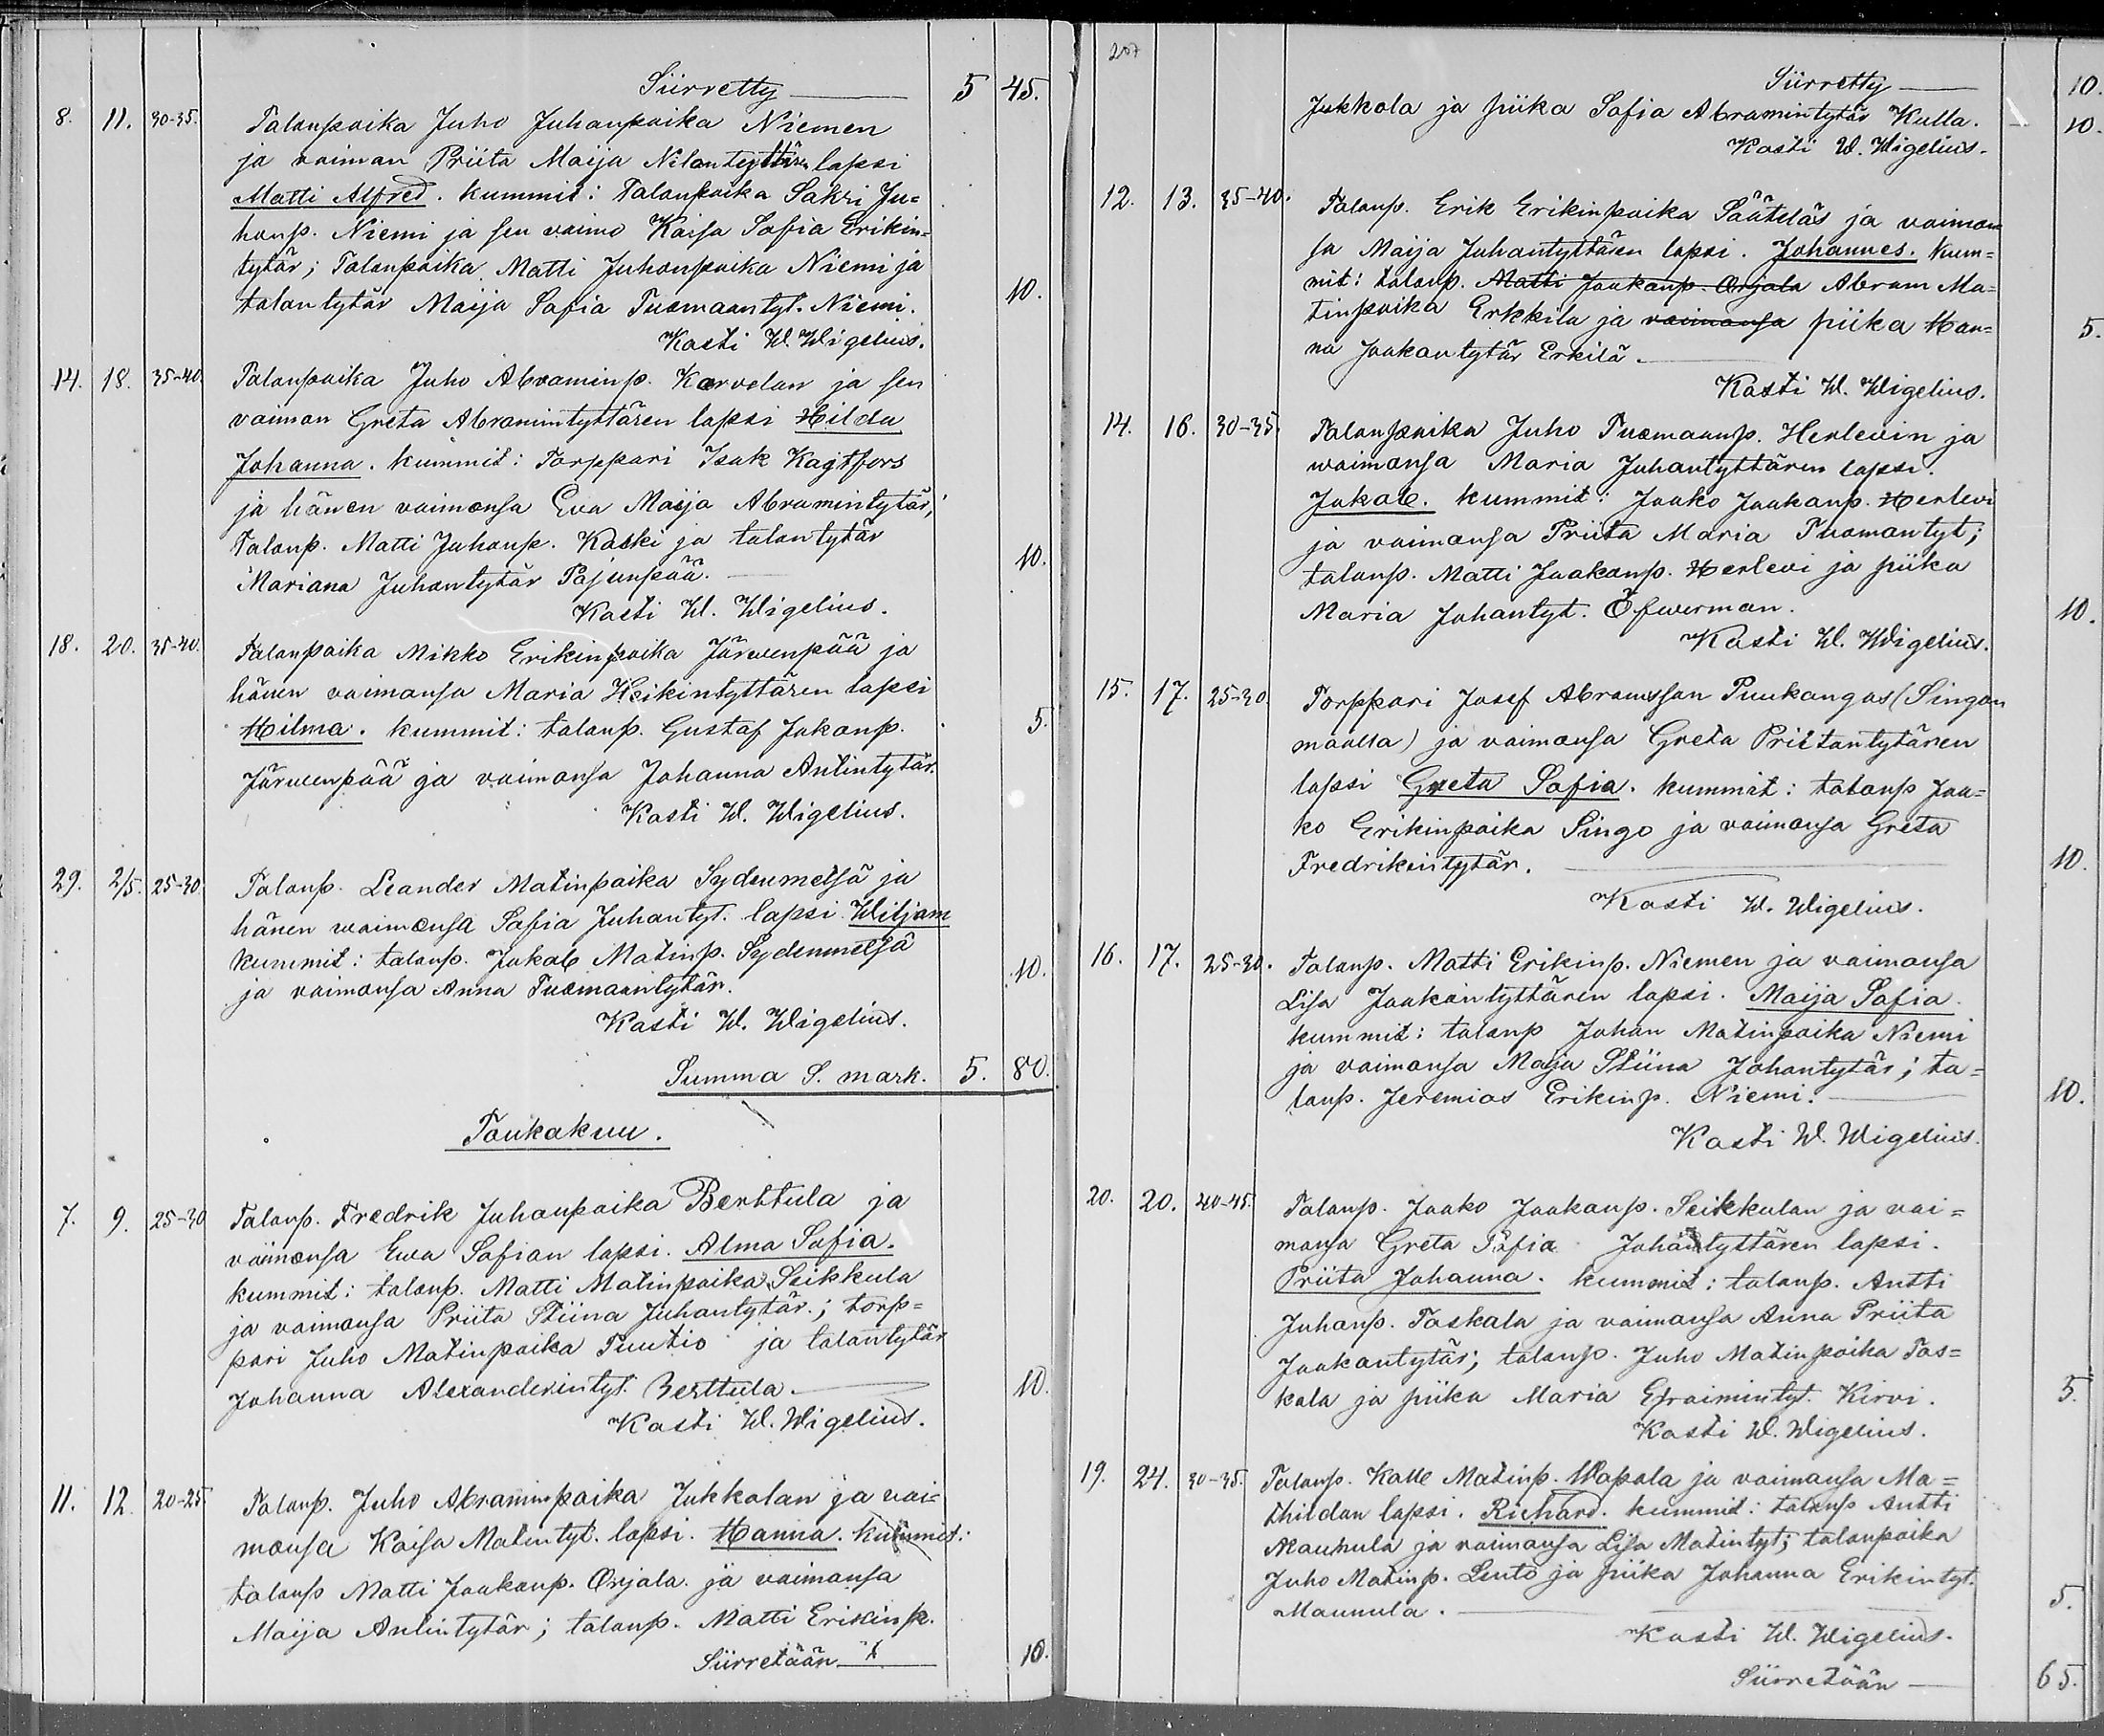 Siirretty 5 45.
8. 11. 30-35. Talanpoika Juho Juhanpoika Niemen
ja vaiman Priita Maija Nilantyttären lapsi
Matti Alfred. kummit: Talanpoika Sakri Ju=
hanp. Niemi ja sen vaimo Kaisa Sofia Erikin=
tytär; Talanpoika Matti Juhanpoika Niemi ja
talantytär Maija Sofia Tuomaantyt. Niemi. 10.
Kasti W. Wigelius.
14. 18. 35-40. Talanpoika Juho Abraminp. Karvolan ja sen
vaiman Greta Abramintyttären lapsi Hilda
Johanna. kummit: Torppari Isak Kagtfors
ja hänen vaimonsa Eva Maija Abramintytär;
Talanp. Matti Juhanp. Kaski ja talantytär 10.
Mariana Juhantytär Pajunpää.
Kasti W. Wigelius.
18. 20. 35-40. Talanpoika Mikko Erikinpoika Järwenpää ja
hänen vaimansa Maria Heikintyttären lapsi
Hilma. kummit: talanp. Gustaf Jakanp. 5.
Järwenpää ja vaimansa Johanna Antintytär.
Kasti W. Wigelius.
29. 2/5. 25-30. Talanp. Leander Matinpoika Sydenmetsä ja
hänen waimonsa Sofia Juhantyt. lapsi Wiljam
kummit: talanp. Jakab Matinp. Sydenmetsä 10.
ja vaimansa Anna Tuomaantytär.
Kasti W. Wigelius.
Summa S. mark. 5. 80.
Toukokuu.
7. 9. 25-30 Talanp. Fredrik Juhanpoika Berttula ja
vaimonsa Ewa Sofian lapsi. Alma Sofia.
kummit: talanp. Matti Matinpoika Seikkula
ja vaimansa Priita Stiina Juhantytär.; torp=
pari Juho Matinpoika Tuutio ja talantytär
Johanna Alexanderintyt. Berttula. 10.
Kasti W. Wigelius.
11. 12. 20-25. Talanp. Juho Abraminpoika Jukkolan ja vai=
monsa Kaisa Matintyt. lapsi. Hanna. kummit:
talanp Matti Jaakanp. Orjala. ja vaimansa
Maija Antintytär; talanp. Matti Erikinp.
Siirretään 10.
207
Siirretty 10.
Jukkola ja piika Sofia Abramintytär Kulla. 10.
Kasti W. Wigelius.
12. 13. 35-40. Talanp. Erik Erikinpoika Säätelär ja vaiman
sa Maija Juhantyttären lapsi. Johannes. kum=
mit: talanp. Matti Jaakanp. Orjala Abram Ma=
tinpoika Erkkila ja vaimansa piika Han= 5.
na Jaakantytär Erkilä.
Kasti W. Wigelius.
14. 16. 30-35. Talanpoika Juho Tuomaanp. Herlevin ja
waimansa Maria Juhantyttären lapsi.
Jakab. kummit: Jaako Jaakanp. Herlevi
ja vaimansa Priita Maria Tuomantyt;
talanp. Matti Jaakanp. Herlevi ja piika
Maria Johantyt. Öfwerman. 10.
Kasti W. Wigelius.
15. 17. 25-30. Torppari Josef Abramsson Puukangas (Singon
maalla) ja vaimansa Greta Priitantytären
lapsi Greta Sofia. kummit: talanp Jaa=
ko Erikinpoika Singo ja vaimansa Greta
Fredrikintytär. 10.
Kasti W. Wigelius.
16. 17. 25-30. Talanp. Matti Erikinp. Niemen ja vaimansa
Lisa Jaakantyttären lapsi. Maija Sofia.
kummit: talanp Johan Matinpoika Niemi
ja vaimansa Maja Stiina Johantytär; ta=
lanp. Jeremias Erikinp. Niemi. 10.
Kasti W. Wigelius.
20. 20. 40-45. Talanp. Jaako Jaakanp. Seikkulan ja vai=
mansa Greta Sofia Johantyttären lapsi.
Priita Johanna. kummit: talanp. Antti
Juhanp. Taskala ja vaimansa Anna Priita
Jaakantytär; talanp. Juho Matinpoika Tas=
kala ja piika Maria Efraimintyt. Kirvi. 5.
Kasti W. Wigelius.
19. 24. 30-35. Talanp. Kalle Matinp. Wapala ja vaimansa Ma=
thildan lapsi. Richard. kummit: talanp Antti
Maunula ja vaimansa Lisa Matintyt; talanpoika
Juho Matinp. Lento ja piika Johanna Erikintyt.
Maunula. 5.
Kasti W. Wigelius.
Siirretään 65.